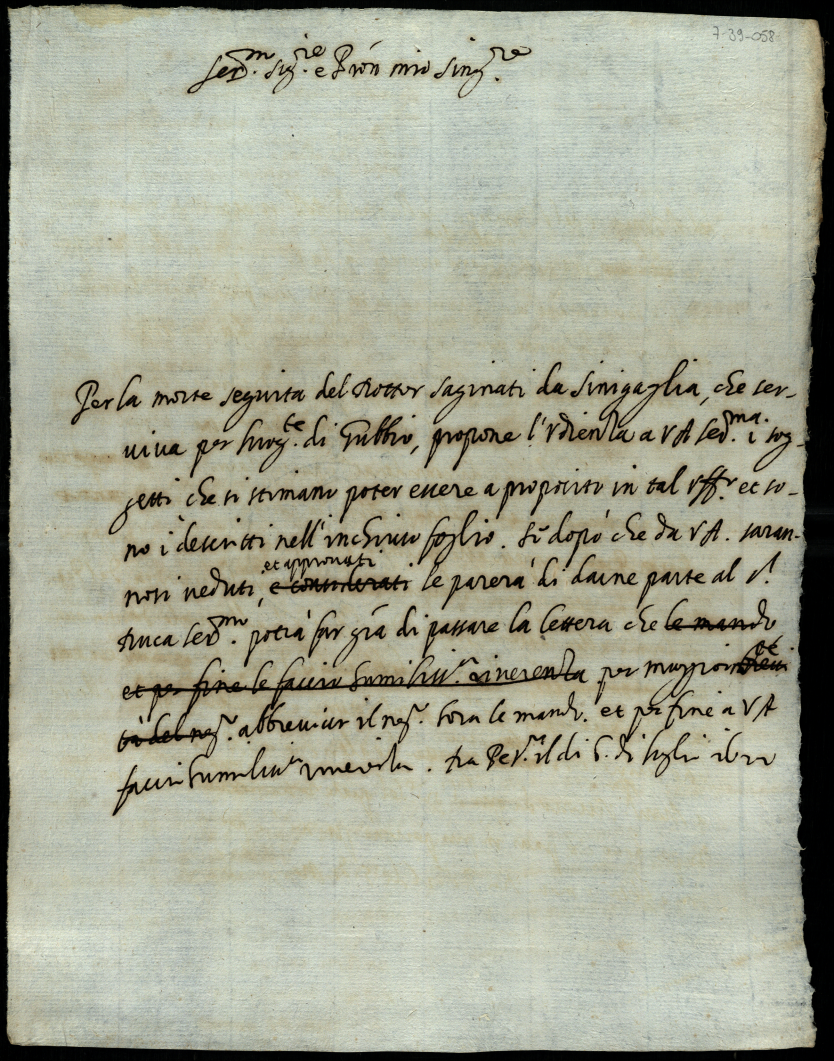 7-39-058
Ser.m Sig.re e Pron mio Sing.re
Per la morte seguita del Dottor Saginati da Sinigaglia, che ser-
viva per luog.te di Gubbio, propone l'Udienza a VA Ser.ma i sog-
getti che si stimano poter essere a proposito in tal uff.o et so-
no i descritti nell'inchiuso foglio. Se dopo che da VA. saran-
et approvati
novi veduti, e considerati le parerà di darne parte al S.r
Duca Ser.m potrà far gra di passare la lettera che le mando
et per fine le faccio humiliss.a riverenza per maggiorm.te
tà del neg.o abbreviar il neg.o hora le mando. et per fine a VA
faccio humiliss.a riverenza. Da Pes.o il di 6. di luglio